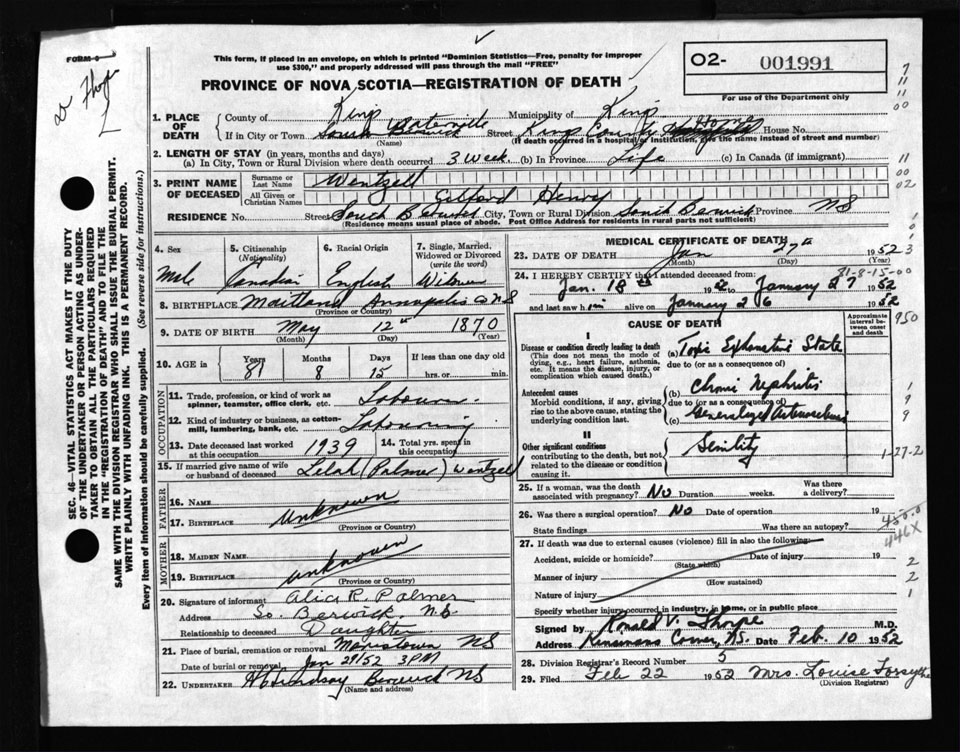 FORM
Dr Thorpe
This form, if placed in an envelope, on which is printed "Dominion Statistics—Free, penalty for improper
use $300," and properly addressed will pass through the mail "FREE"
PROVINCE OF NOVA SCOTIA—REGISTRATION OF DEATH
O2- 001991
For use of the Department only
1. PLACE OF DEATH
County of Kings Municipality of Kings
If in City or Town South Berwick Waterville Street Kings County Home House No.
(Name) (If death occurred in a hospital or institution, give the name instead of street and number)
2. LENGTH OF STAY (in years, months and days)
(a) In City, Town or Rural Division where death occurred 3 Week. (b) In Province Life (c) In Canada (if immigrant)
3. PRINT NAME OF DECEASED
Surname or Last Name Wentzell
All Given or Christian Names Gilford Henry
RESIDENCE No. Street South Berwick City, Town or Rural Division South Berwick Province NS
(Residence means usual place of abode. Post Office Address for residents in rural parts not sufficient)
4. Sex Male
5. Citizenship (Nationality) Canadian
6. Racial Origin English
7. Single, Married, Widowed or Divorced (write the word) Widower
8. BIRTHPLACE Maitland Annapolis Co NS
(Province or Country)
9. DATE OF BIRTH May 12th 1870
(Month) (Day) (Year)
10. AGE in Years 81 Months 8 Days 15 If less than one day old hrs. or min.
OCCUPATION
11. Trade, profession, or kind of work as spinner, teamster, office clerk, etc. Labourer
12. Kind of industry or business, as cotton-mill, lumbering, bank, etc. Labouring
13. Date deceased last worked at this occupation 1939 14. Total yrs. spent in this occupation
15. If married give name of wife or husband of deceased Lelah (Palmer) Wentzell
FATHER
16. NAME unknown
17. BIRTHPLACE
(Province or Country)
MOTHER
18. MAIDEN NAME unknown
19. BIRTHPLACE
(Province or Country)
20. Signature of informant Alice R. Palmer
Address So. Berwick N.S
Relationship to deceased Daughter
21. Place of burial, cremation or removal Morristown NS
Date of burial or removal Jan 29/52 3 PM
22. UNDERTAKER Lindsay Berwick NS
(Name and address)
MEDICAL CERTIFICATE OF DEATH
23. DATE OF DEATH Jan 27th 1952
(Month) (Day)
81-8-15-00
24. I HEREBY CERTIFY that I attended deceased from
Jan. 18th 1952 to January 27 1952
and last saw him alive on January 26 1952
CAUSE OF DEATH
Approximate interval between onset and death
Disease or condition directly leading to death
(This does not mean the mode of dying, e.g., heart failure, asthenia, etc. It means the disease, injury, or complication which caused death.)
(a) Toxic Exhaustive State
due to (or as a consequence of)
Antecedent causes
Morbid conditions, if any, giving rise to the above cause, stating the underlying condition last.
(b) Chronic Nephritis
due to (or as a consequence of)
(c) Generalized Arteriosclerosis
II
Other significant conditions contributing to the death, but not related to the disease or condition causing it.
Senility
25. If a woman, was the death associated with pregnancy? No Duration weeks. Was there a delivery?
26. Was there a surgical operation? No Date of operation 19
State findings Was there an autopsy?
27. If death was due to external causes (violence) fill in also the following:
Accident, suicide or homicide? Date of injury 19
(State which)
Manner of injury
(How sustained)
Nature of injury
Specify whether injury occurred in industry, in home, or in public place
Signed by Ronald V. Thorpe M.D.
Address Kinsmans Corner, NS. Date Feb. 10 1952
28. Division Registrar's Record Number 5
29. Filed Feb 22 1952 Mrs. Louise Forsythe
(Division Registrar)
950
1-27-2
446X
SEC. 46—VITAL STATISTICS ACT MAKES IT THE DUTY
OF THE UNDERTAKER OR PERSON ACTING AS UNDER-
TAKER TO OBTAIN ALL THE PARTICULARS REQUIRED
IN THE "REGISTRATION OF DEATH" AND TO FILE THE
SAME WITH THE DIVISION REGISTRAR WHO SHALL ISSUE THE BURIAL PERMIT.
WRITE PLAINLY WITH UNFADING INK. THIS IS A PERMANENT RECORD.
Every item of information should be carefully supplied. (See reverse side for instructions.)